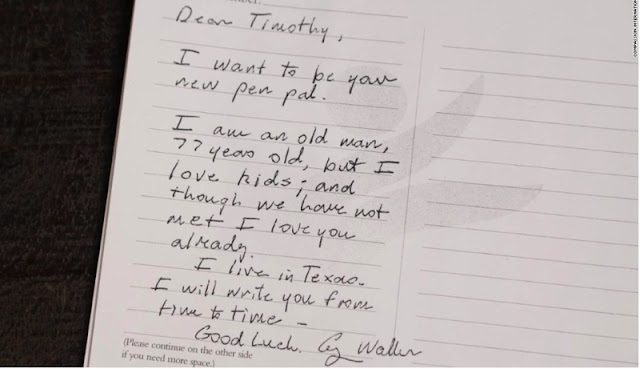 Dear Timothy,
I want to be your
new pen pal.
I am an old man,
77 years old, but I
love kids; and
though we have not
met I love you
already.
I live in Texas -
I will write you from
time to time -
Good Luck. G Walker
(Please continue on the other side
if you need more space.)
COMPASSION INTERNATIONAL